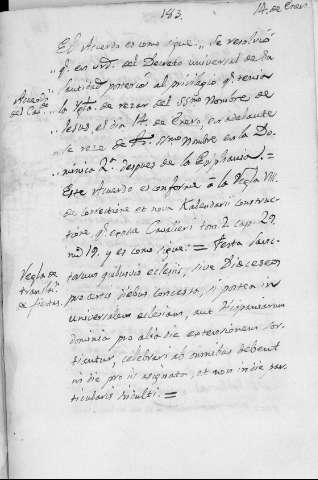 183.
14. de Enero
El Acuerdo es como sigue: „ Se resolvió
„ q.e en vrd. del Decreto universal de Su
„ Santidad posterior al privilegio q.e tenia
Acuerdo del Cab.o
„ la Ygl.a de rezar del SSmo Nombre de
„ Jesus, el dia 14. de Enero, en adelante
„ se reze de SSmo Nombre en la Do-
„ minica 2.a despues de la Epiphania. =
Este Acuerdo es conforme à la Regla VII.
de correctione et nova Kalendarii construc-
tione q.e expone Cavalieri tom. 2. cap. 29.
n.o 19. y es como sigue: = Festa Sanc-
Regla de translac.n de fiestas.
torum quibusvis eclesiis, sive Diocesem
pro certis diebus concessa, si postea in
universalem eclesiam, aut Hispaniarum
dominia pro alto die extensionem sor-
tientur, celebrari ab omnibus debent
in die pro iis asignato, et non in die par-
ticularis indulti. =